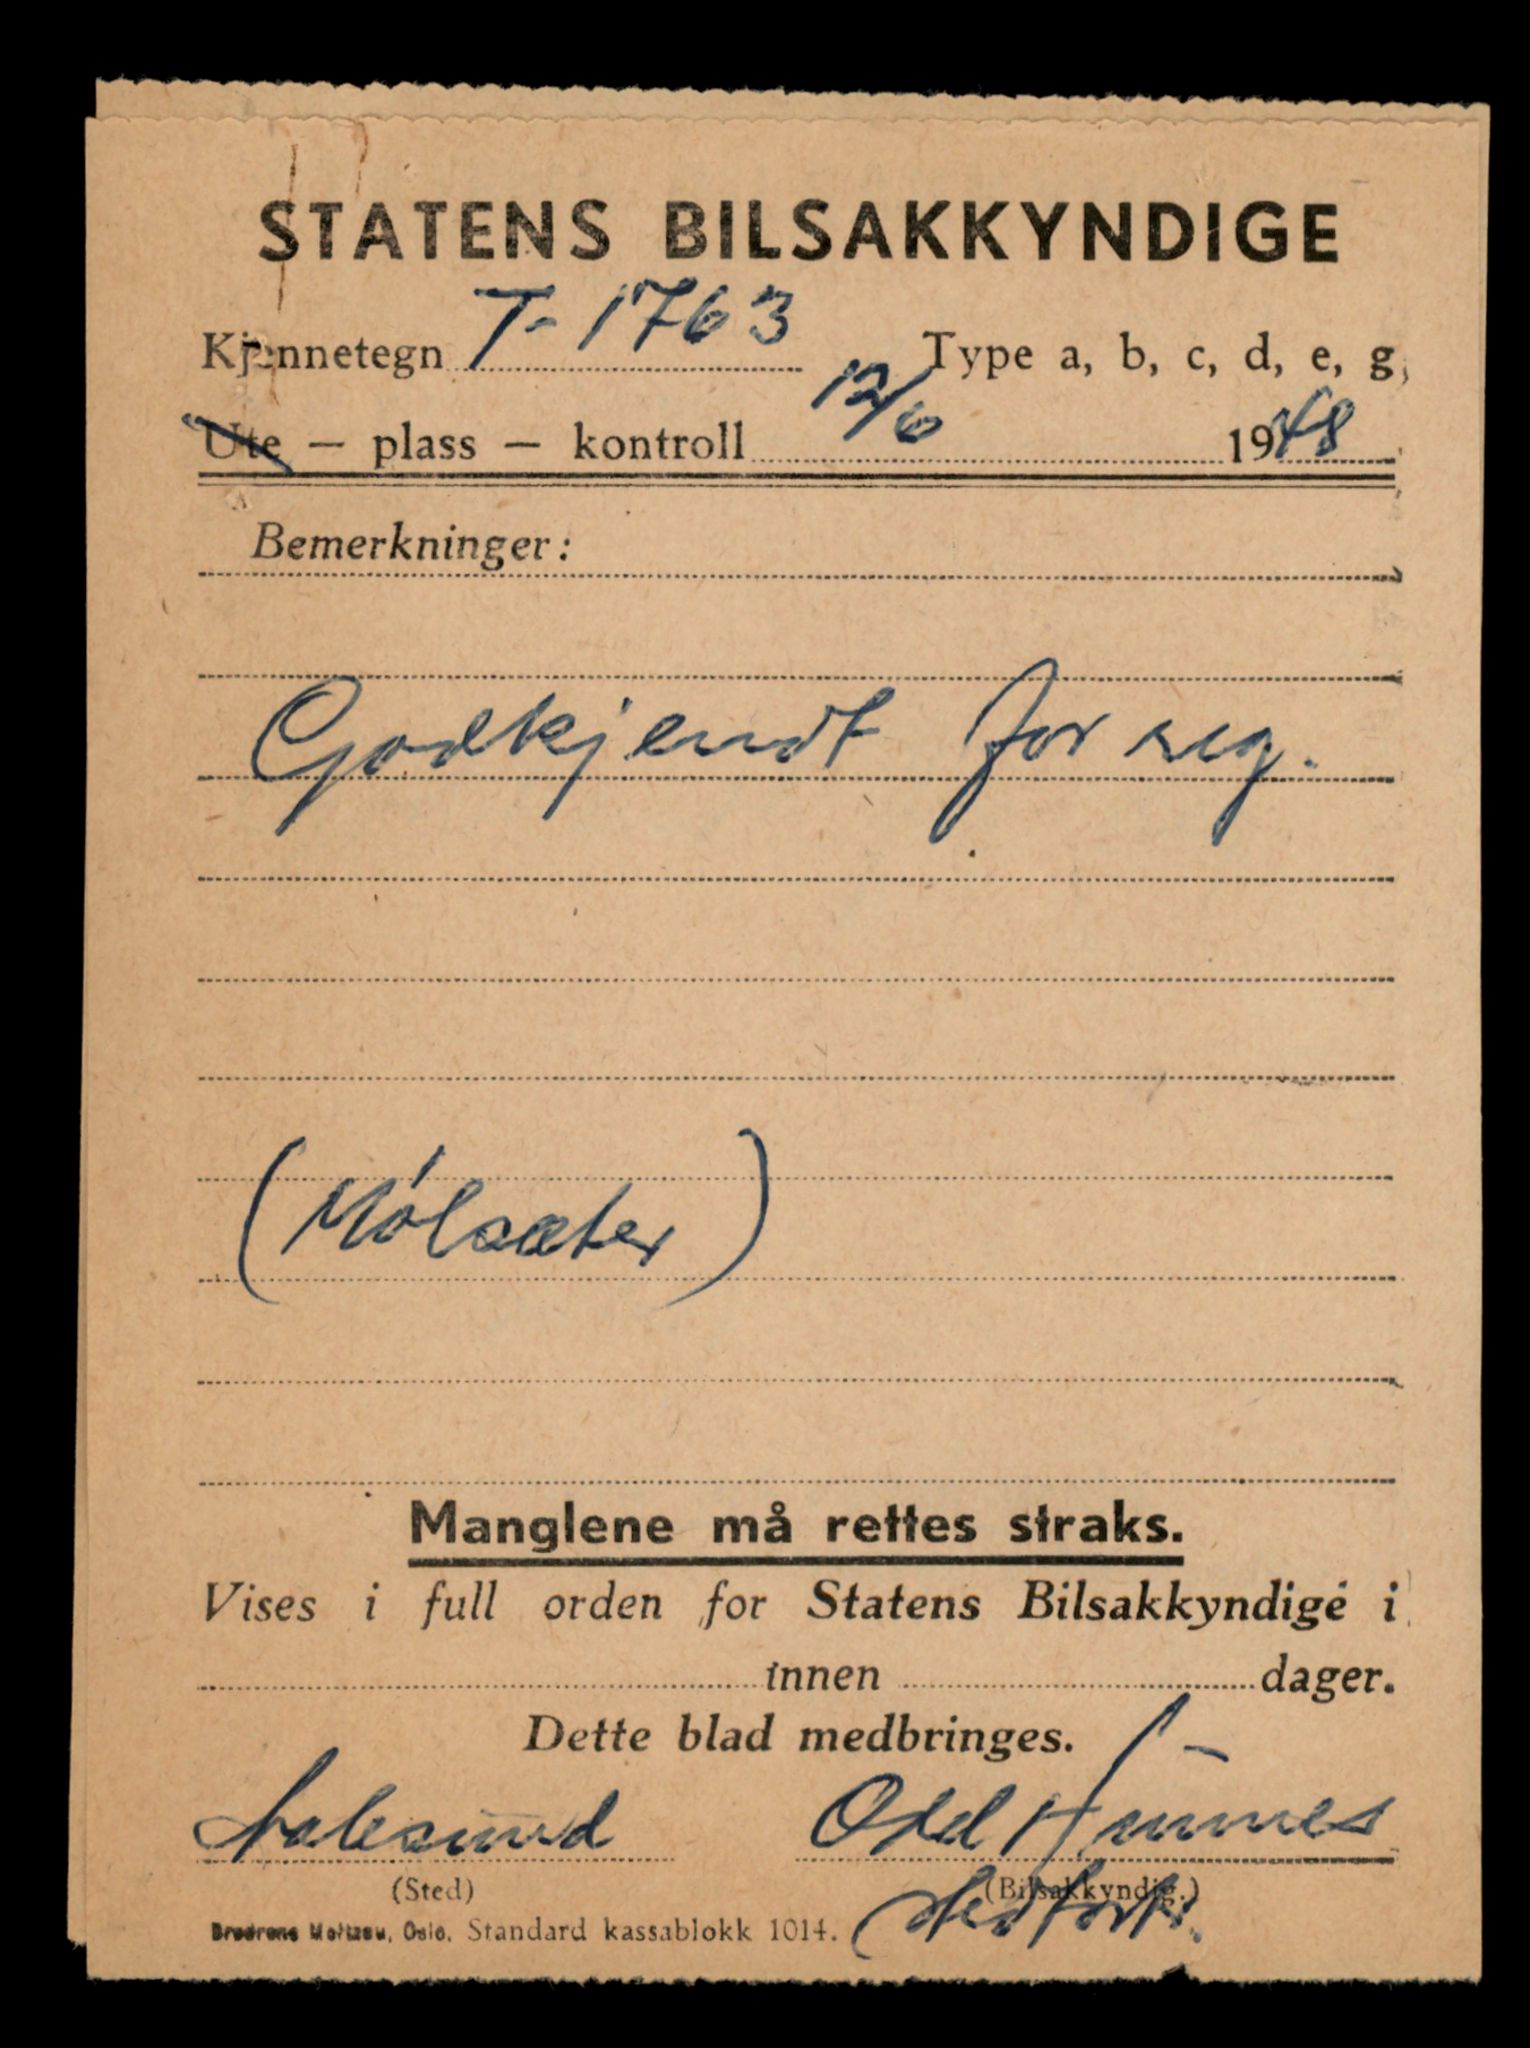 STATENS BILSAKKYNDIGE
Kjennetegn T-1763 Type a, b, c, d, e, g,
Ute — plass — kontroll 12/6 1948
Bemerkninger:
Godkjendt for reg.
(Mólsæter)
Manglene må rettes straks.
Vises i full orden for Statens Bilsakkyndige i
innen dager.
Dette blad medbringes.
Aalesund Odd
(Sted) (Bilsakkyndig.)
Brødrene Moltzau, Oslo. Standard kassablokk 1014.